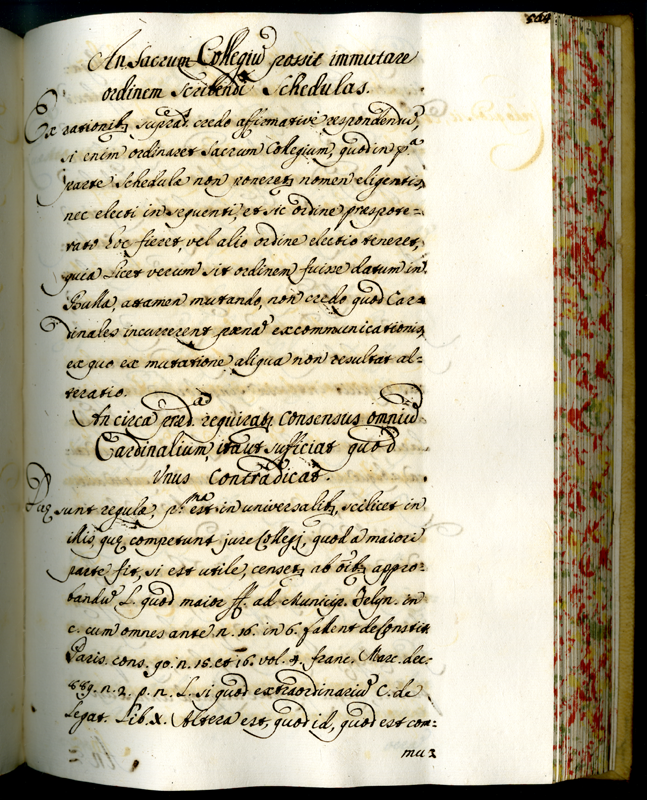 504
An Sacrum Collegiũ possit immutare
ordinem scribendi Schedulas.
Ex rationib; suprat. credo affirmative respondendũ,
si enim ordinaret Sacrum Collegium, quod in p.ª
parte Schedulæ non poneret; nomen eligentis,
nec electi in sequenti, et sic ordine prespore=
rato hoc fieret, vel alio ordine electio teneret,
quia licet verum sit ordinem fuisse datum in
Bulla, attamen mutando, non credo quod Car=
dinales incurrerent pænã excommunicationis,
ex quo ex mutatione aliqua non resultat al=
teratio.
An circa præd.ª requirat; Consensus omniũ
Cardinalium, ita ut sufficiat quod
Unus Contradicat.
Duæ sunt regulæ, p.ma est in universalib; scilicet in
illis, quę competunt jure Collegij, quod a maiori
parte fit, si est utile, censet; ab oĩb; appro=
bandũ, L. quod maior ff. ad Municip. Felyn. in
c. cum omnes ante n. 16. in 6. fallent de Constit.
Paris. cons. 90. n. 15. et 16. vol. 4. Franc. Marc. dec.
889. n. 2. p. n. L. si quod extraordinariũ C. de
Legat. Lib. X. Altera est, quod id, quod est com=
mu=